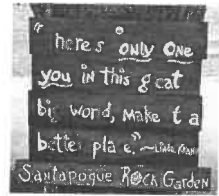 "here's only one
you in this g eat
big word, make t a
bette pla e." ~
Santapogue Rock Garden